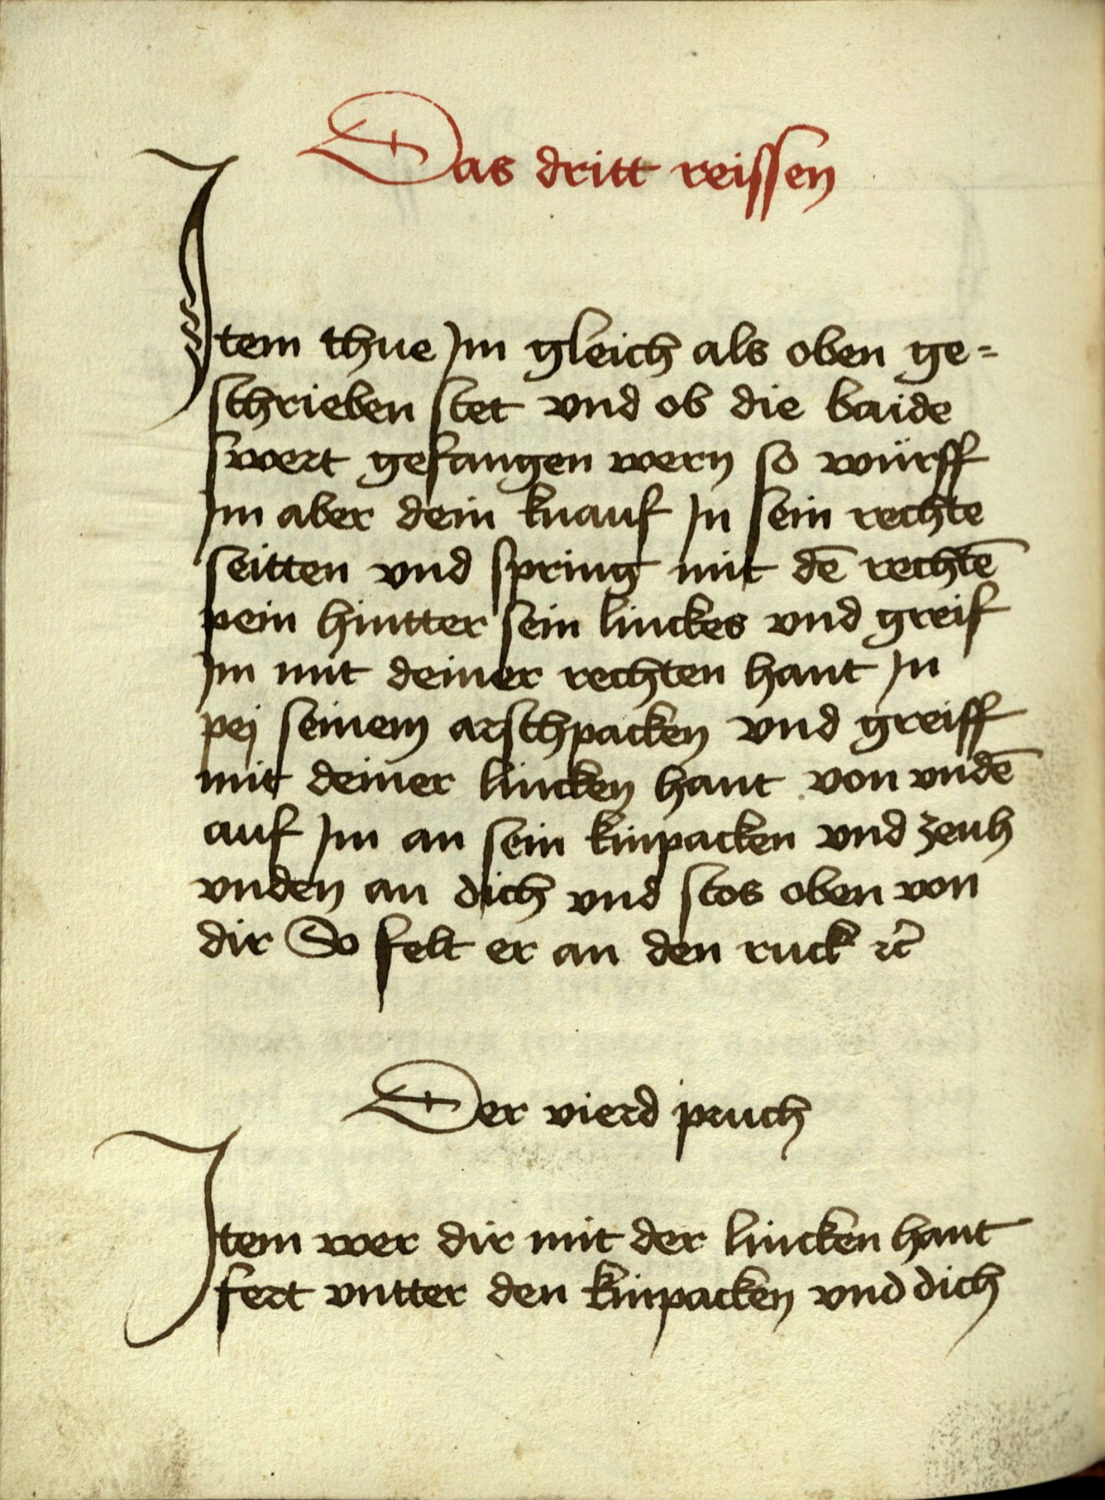 Das dritt reissen
Jtem thue Jm gleich als oben ge=
schrieben stet vnd ob die baide
swert gefangen wern so würff
Jm aber dein knauf Jn sein rechte
seitten vnd spring mit dē rechtē
pein hintter sein linckes vnd greif
Jm mit deiner rechten hant Jn
pej seinem arschpacken vnd greiff
mit deiner lincken hant von vndē
auf Jm an sein kinpacken vnd zeuh
vnden an dich vnd stos oben von
dir So felt er an den ruck ꝛc̄
Der vierd pruch
Jtem wer dir mit der lincken hant
fert vntter den kinpacken vnd dich